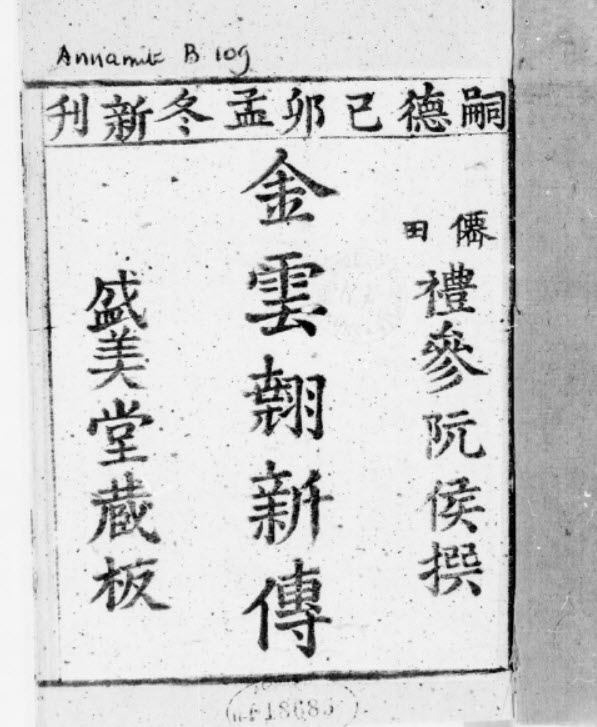 Annamite B 109
嗣德己卯孟冬新刊
僊田
禮參阮侯撰
金雲翹新傳
盛美堂藏板